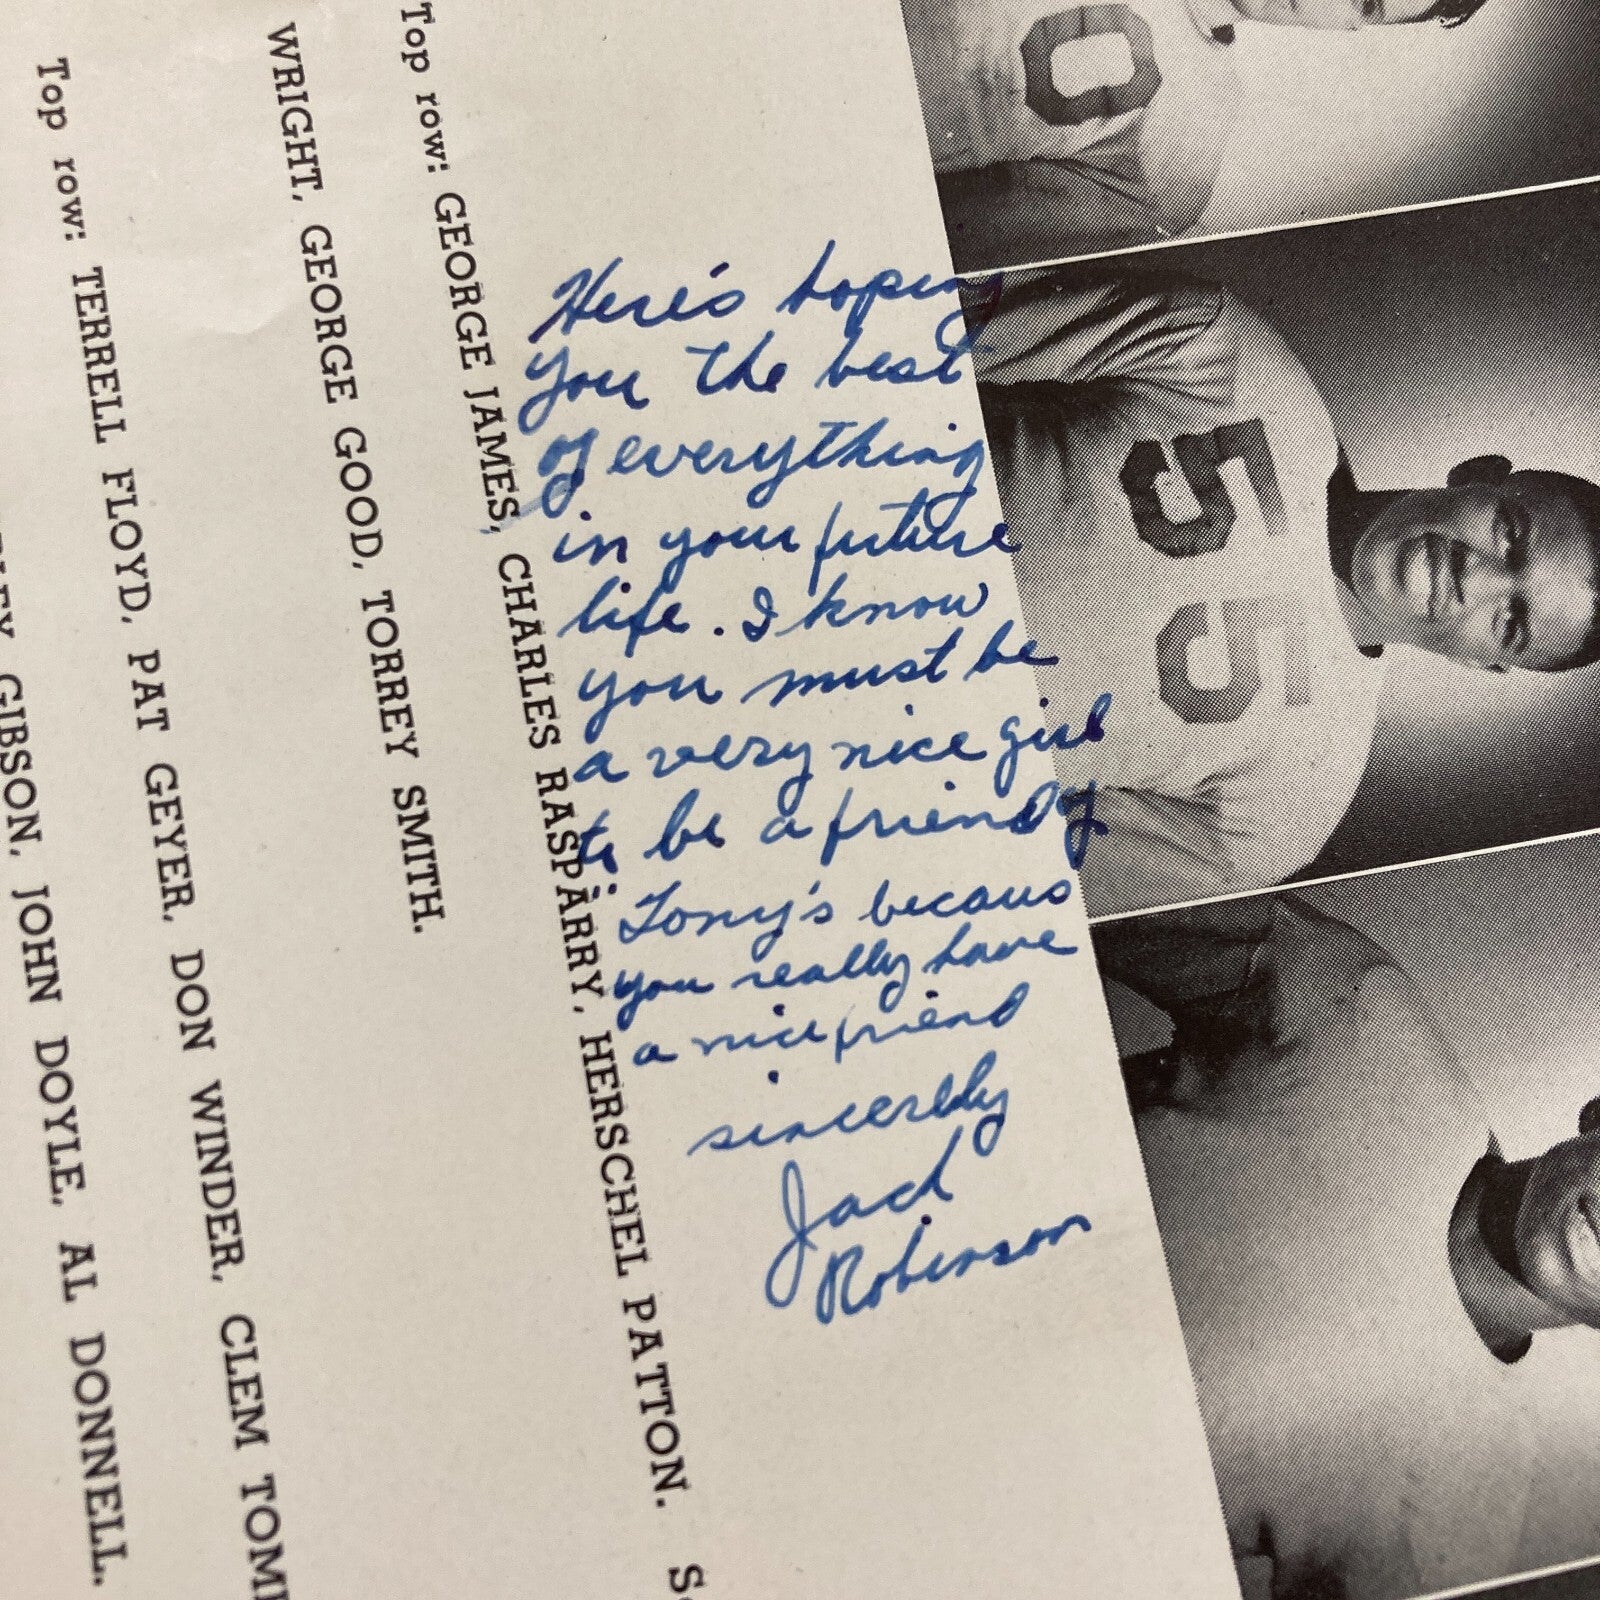 Top row: GEORGE JAMES, CHARLES RASPARRY, HERSCHEL PATTON.
WRIGHT, GEORGE GOOD, TORREY SMITH.
Top row: TERRELL FLOYD, PAT GEYER, DON WINDER, CLEM
GIBSON, JOHN DOYLE, AL DONNELL.
Here's hoping
you the best
of everything
in your future
life. I know
you must be
a very nice girl
to be a friend of
Tony's becaus
you really have
a nice friend
sincerely
Jack
Robinson
0
55